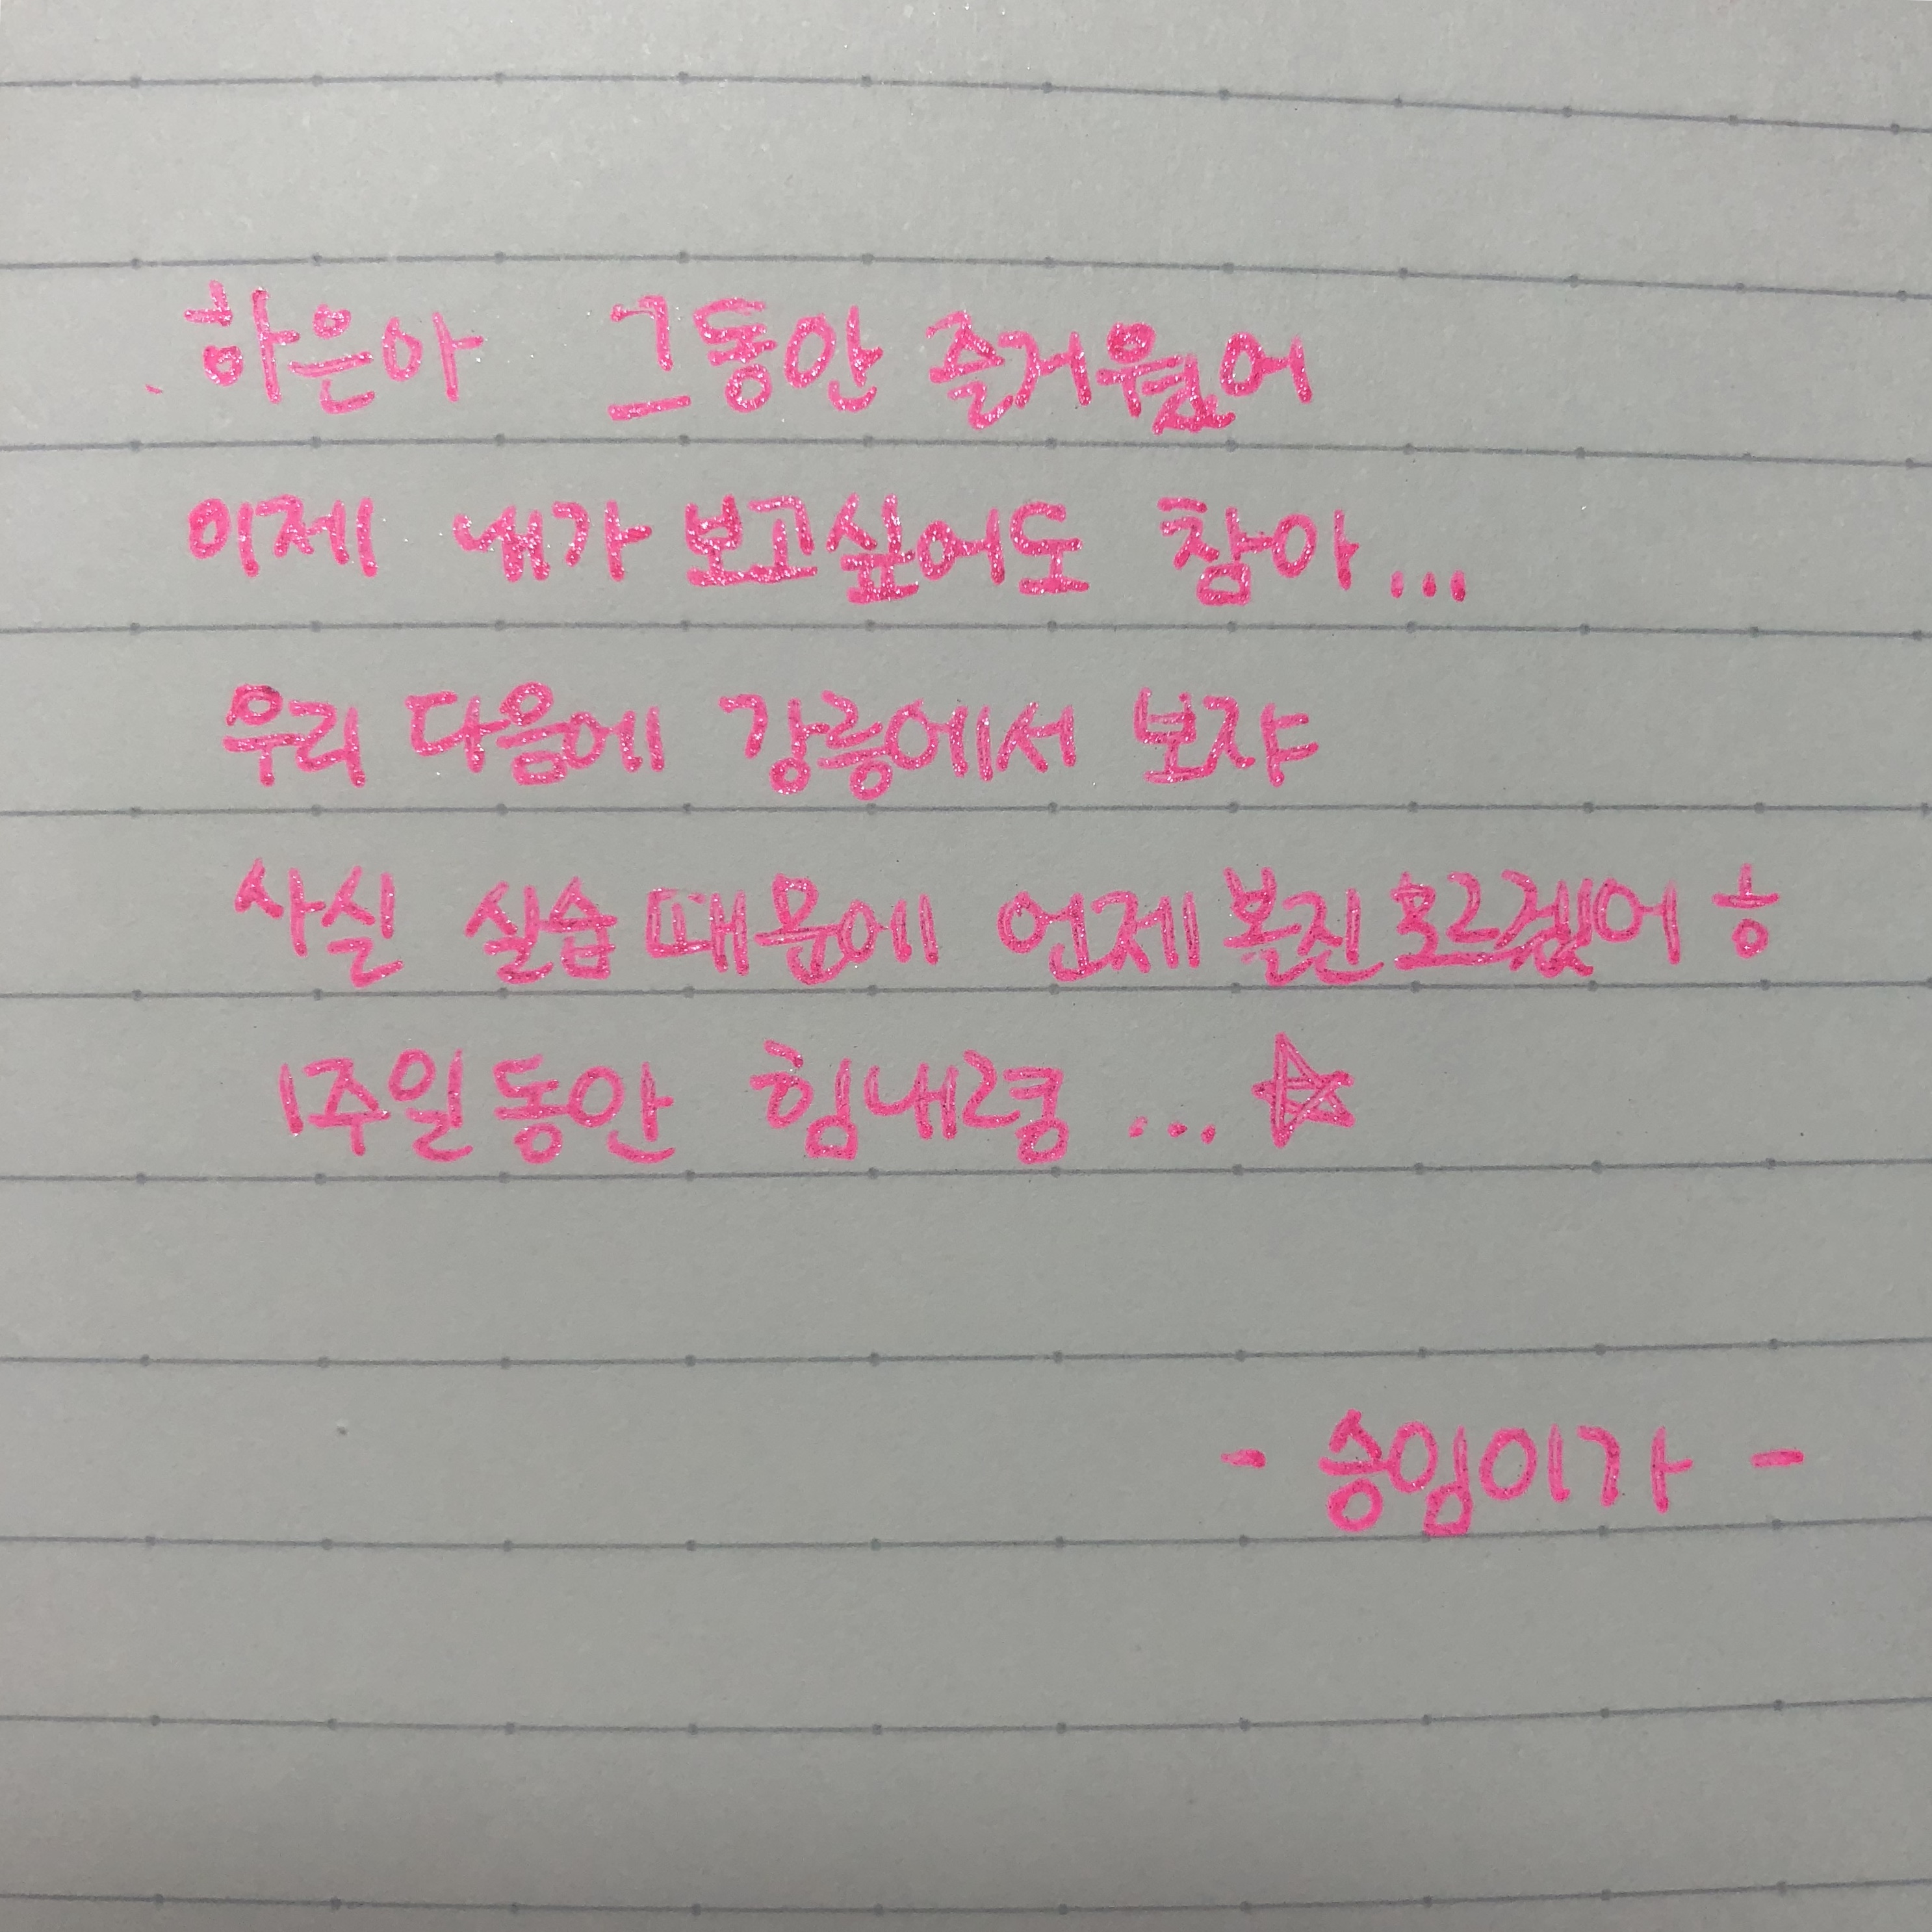 하은아 그동안 즐거웠어
이제 내가 보고싶어도 참아...
우리 다음에 강릉에서 보쟈
사실 실습 때문에 언제 볼진 모르겠어 ㅎ
1주일동안 힘내령 ... ☆
- 승임이가 -